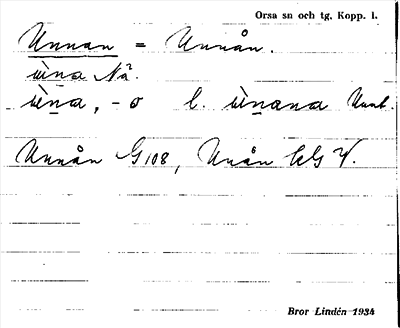 Orsa sn och tg, Kopp. l.
Unnan = Unnån.
ùṉa Nä².
ùṉa, -o l. ùṉana Vunt.
Unnån G108, Unån
Bror Lindén 1934